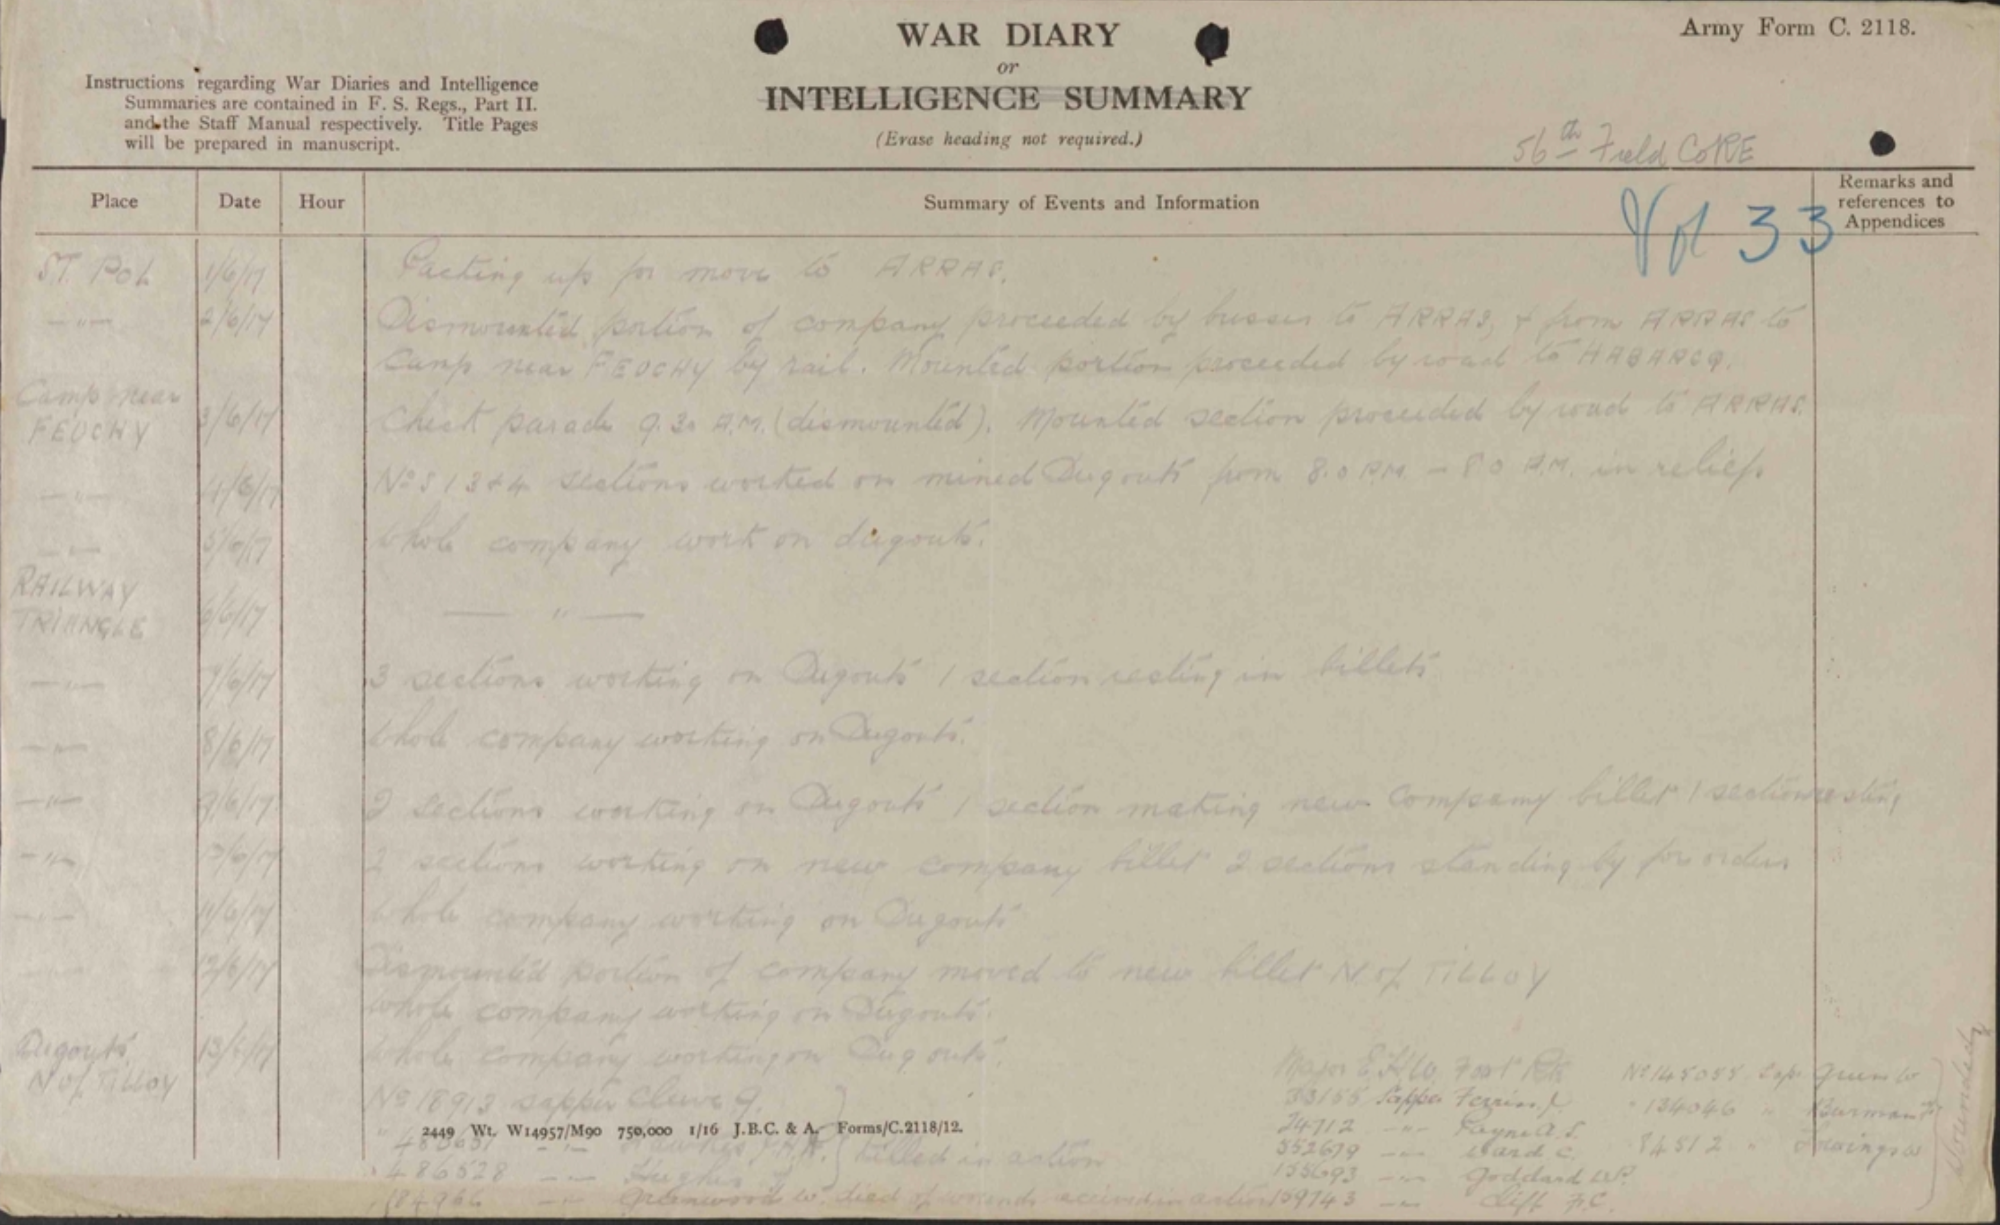 Army Form C. 2118.
WAR DIARY
or
INTELLIGENCE SUMMARY
(Erase heading not required.)
Instructions regarding War Diaries and Intelligence
Summaries are contained in F. S. Regs., Part II.
and the Staff Manual respectively. Title Pages
will be prepared in manuscript.
56th Field Co RE
Vol 33
Place Date Hour Summary of Events and Information Remarks and references to Appendices
ST. POL 1/6/17 Packing up for move to ARRAS.
—"— 2/6/17 Dismounted portion of company proceeded by busses to ARRAS, & from ARRAS to
Camp near FEUCHY by rail. Mounted portion proceeded by road to HABARCQ.
Camp near FEUCHY 3/6/17 Check parade 9.30 A.M. (dismounted). Mounted section proceeded by road to ARRAS.
—"— 4/6/17 Nos 1 3 & 4 sections worked on mined Dugouts from 8.0 P.M. – 8.0 A.M. in reliefs.
—"— 5/6/17 Whole company work on dugouts.
RAILWAY TRIANGLE 6/6/17 —— " ——
—"— 7/6/17 3 sections working on Dugouts 1 section resting in billets
—"— 8/6/17 Whole company working on Dugouts.
—"— 9/6/17 2 sections working on Dugouts 1 section making new Company billet 1 section resting
—"— 10/6/17 2 sections working on new company billet 2 sections standing by for orders
—"— 11/6/17 Whole company working on Dugouts
12/6/17 Dismounted portion of company moved to new billet N of TILLOY
Whole company working on Dugouts.
Dugouts N of TILLOY 13/6/17 Whole company working on Dugouts.
No 18913 Sapper Cleve G.
—"—
486528 —"— Hughes
184966 —"— Greenwood W. died of wounds received in action
killed in action
Major
33155 Sapper
24712 —"—
352679 —"— Ward C.
155693 —"— Goddard W.
159743 —"— Cliff F.C.
No 148088 Green W
134046 " Burman
84512 "
Wounded
2449 Wt. W14957/M90 750,000 1/16 J.B.C. & A. Forms/C.2118/12.